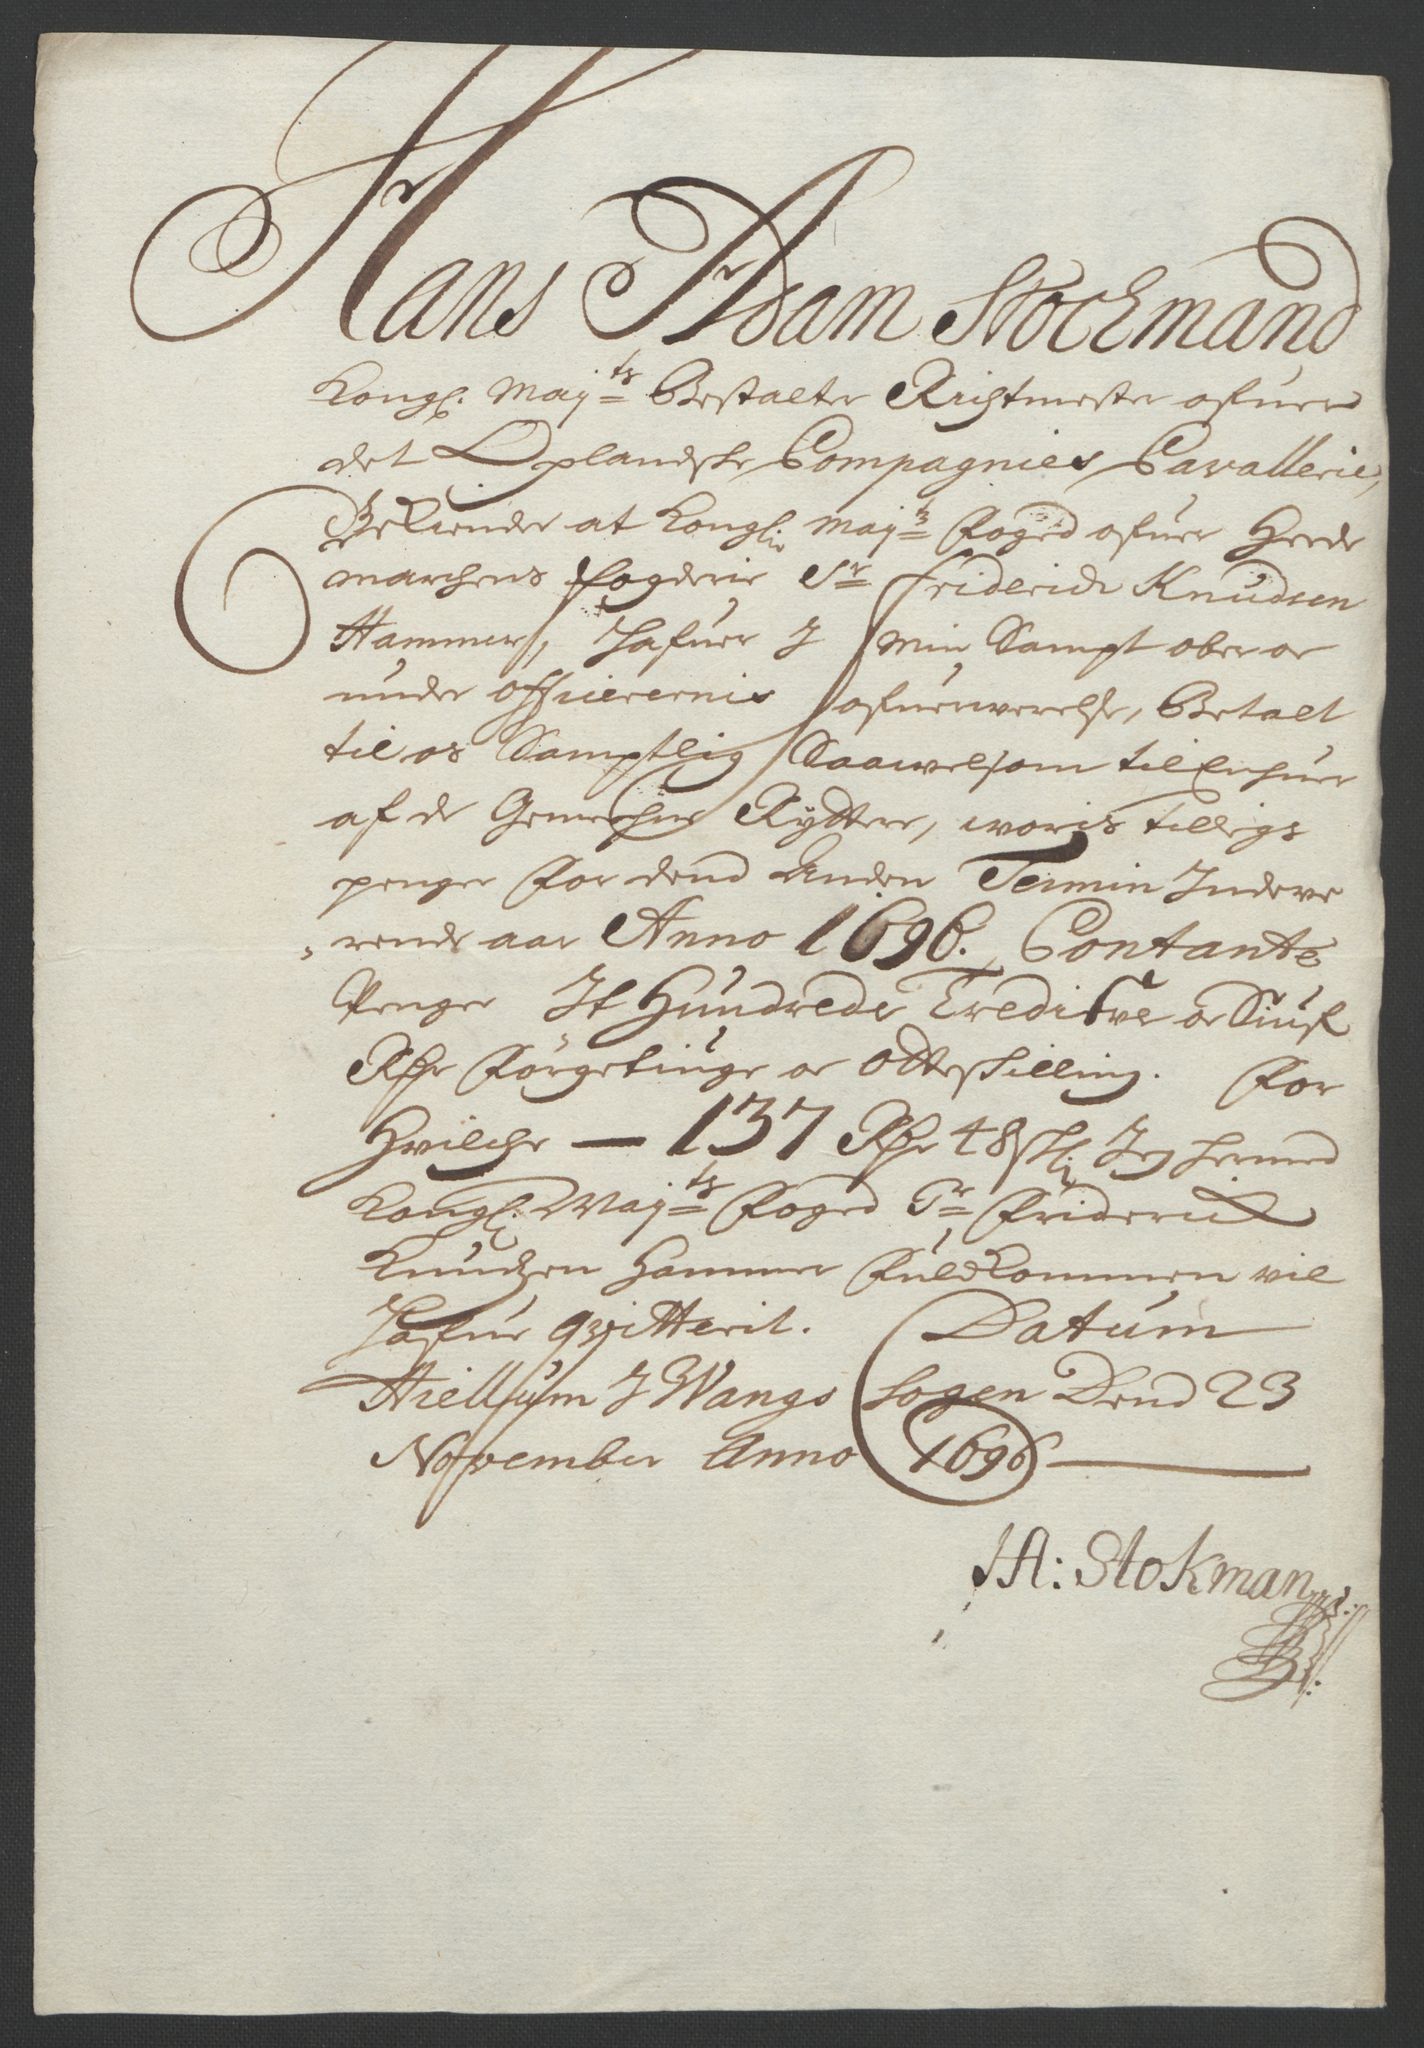 Hans Adam Stockmand
Kongl. May:ts Bestalter Richtmester ofuer
det Oplandske Compagnies Cavallerie,
Bekiender at Kongl: May:ts Foged ofuer Hede
marchens fogderie Sr Friderich Knudsen
Hammer, Hafuer J min Sampt ober oc
under officierernis ofuerwerelse, Betalt
til os Samptlig Saawelsom til Enhuer
af de Gemehne Rÿttere, woris tillegs
penger for dend Anden Termin Indeve
rende aar Anno 1696. Contante
Penger Jt Hundrede Tredifve oc Siuf
Rdr Förgetiuge oc Otteskilling. For
Hvilche — 137 Rdr 48 skl: Jeg hermed
Kongl: May:ts Foged Sr Friderich
Knudzen Hammer Fuldkommen vil
Hafue qvitterit. Datum
Hiellum J Wangs Sogen Dend 23
November Anno 1696
HA: Stokman